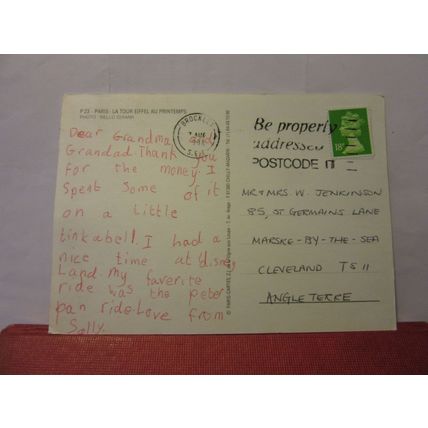 P 23 - PARIS - LA TOUR EIFFEL AU PRINTEMPS
Dear Grandma and
Grandad Thank you
for the money. I
Spent some of it
on a little
tinkabell. I had a
nice time at disney
Land. my favorite
ride was the peter
pan ride. Love from
Sally
BROCKLEY
7 AUG
S.E.4
Be properly
addressed
POSTCODE IT
18P
MR & MRS W. JENKINSON
85, ST GERMAINS LANE
MARSKE-BY-THE-SEA
CLEVELAND TS11
ANGLETERRE